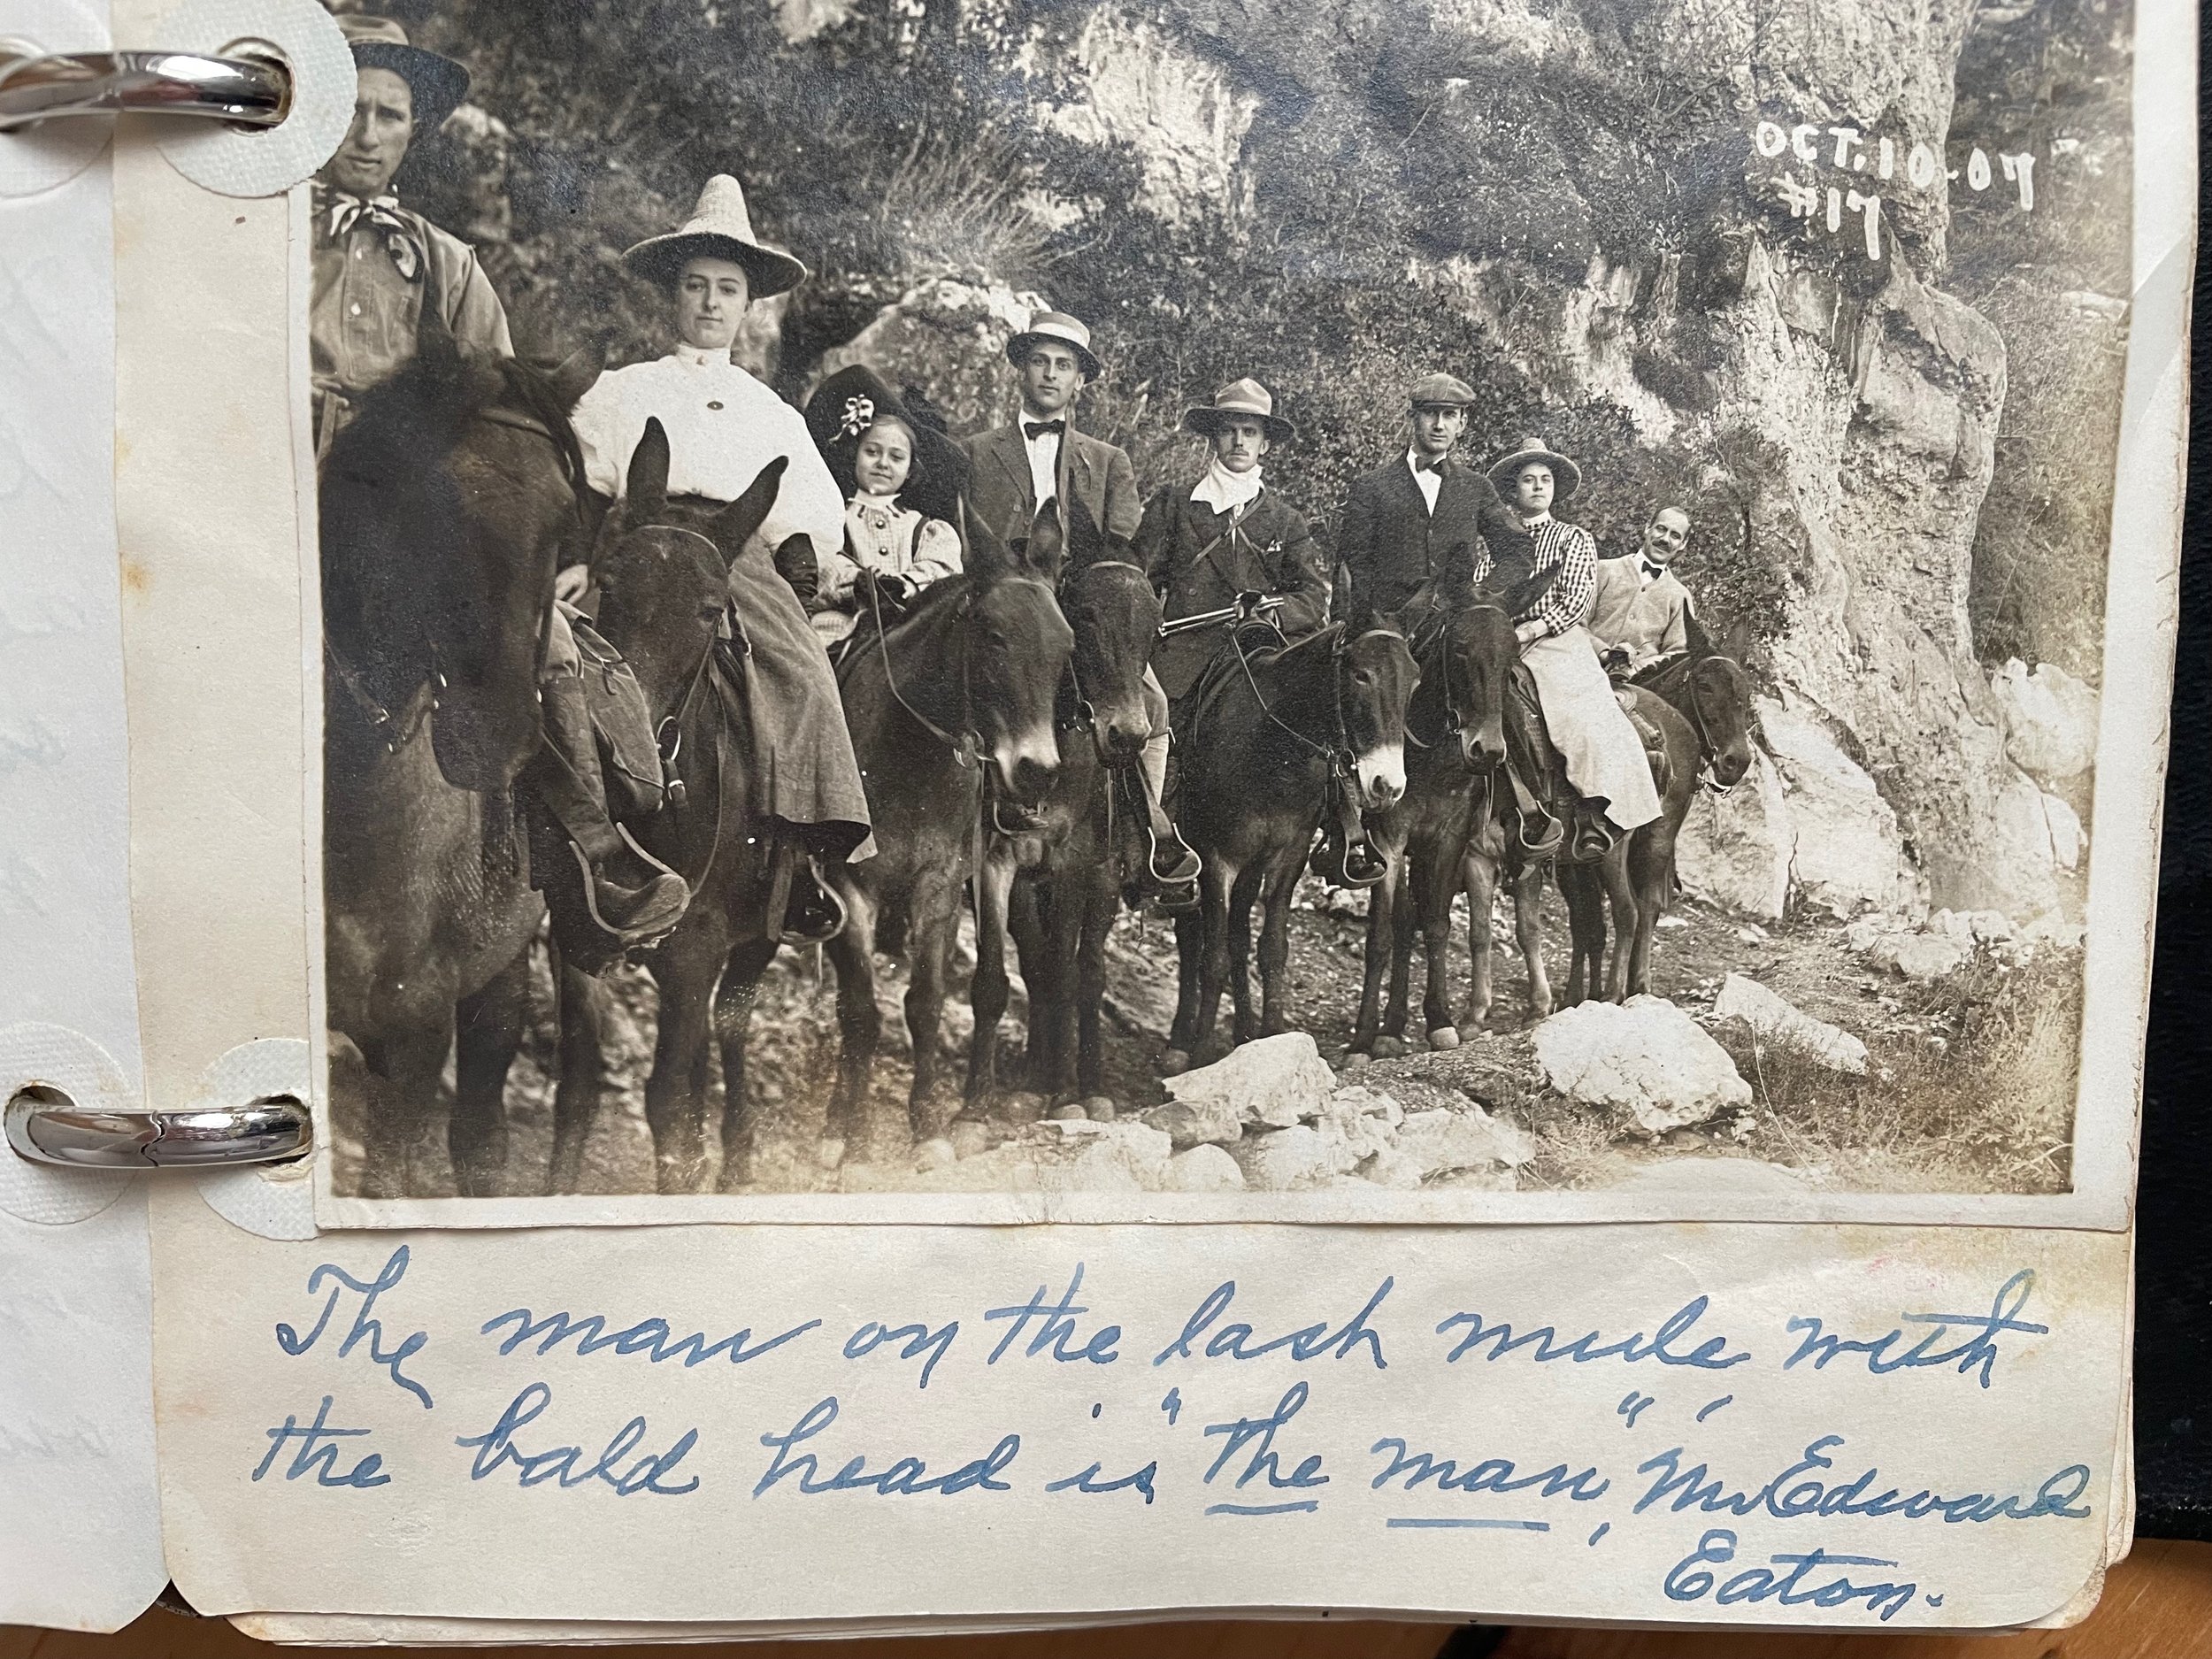 OCT. 10-07
#17
The man on the last mule with
the bald head is "the man", Mr Edward
Eaton.